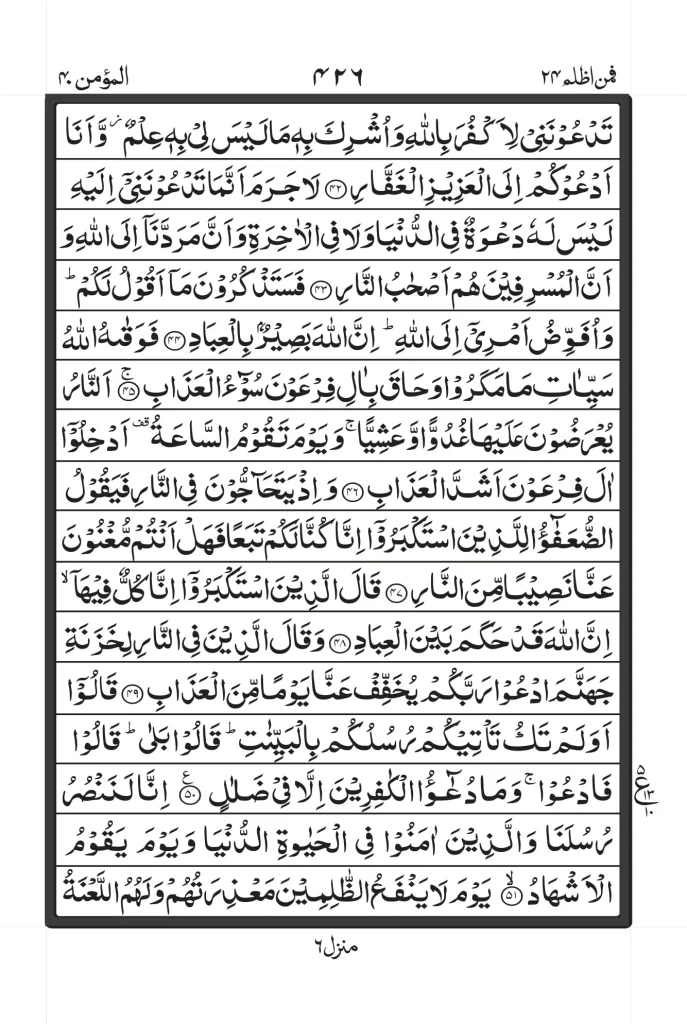 فمن اظلم ۲۴ ۴۲۶ المؤمن ۴۰
تَدْعُوْنَنِیْ لِاَكْفُرَ بِاللّٰهِ وَ اُشْرِكَ بِهٖ مَا لَیْسَ لِیْ بِهٖ عِلْمٌ٘ وَّ اَنَا
اَدْعُوْكُمْ اِلَى الْعَزِیْزِ الْغَفَّارِ ﴿۴۲﴾ لَا جَرَمَ اَنَّمَا تَدْعُوْنَنِیْۤ اِلَیْهِ
لَیْسَ لَهٗ دَعْوَةٌ فِی الدُّنْیَا وَ لَا فِی الْاٰخِرَةِ وَ اَنَّ مَرَدَّنَاۤ اِلَى اللّٰهِ وَ
اَنَّ الْمُسْرِفِیْنَ هُمْ اَصْحٰبُ النَّارِ ﴿۴۳﴾ فَسَتَذْكُرُوْنَ مَاۤ اَقُوْلُ لَكُمْ ؕ
وَ اُفَوِّضُ اَمْرِیْۤ اِلَى اللّٰهِ ؕ اِنَّ اللّٰهَ بَصِیْرٌۢ بِالْعِبَادِ ﴿۴۴﴾ فَوَقٰىهُ اللّٰهُ
سَیِّاٰتِ مَا مَكَرُوْا وَ حَاقَ بِاٰلِ فِرْعَوْنَ سُوْٓءُ الْعَذَابِ ۚ﴿۴۵﴾ اَلنَّارُ
یُعْرَضُوْنَ عَلَیْهَا غُدُوًّا وَّ عَشِیًّا ۚ وَ یَوْمَ تَقُوْمُ السَّاعَةُ قف اَدْخِلُوْۤا
اٰلَ فِرْعَوْنَ اَشَدَّ الْعَذَابِ ﴿۴۶﴾ وَ اِذْ یَتَحَآجُّوْنَ فِی النَّارِ فَیَقُوْلُ
الضُّعَفٰٓؤُا لِلَّذِیْنَ اسْتَكْبَرُوْۤا اِنَّا كُنَّا لَكُمْ تَبَعًا فَهَلْ اَنْتُمْ مُّغْنُوْنَ
عَنَّا نَصِیْبًا مِّنَ النَّارِ ﴿۴۷﴾ قَالَ الَّذِیْنَ اسْتَكْبَرُوْۤا اِنَّا كُلٌّ فِیْهَاۤ ۙ
اِنَّ اللّٰهَ قَدْ حَكَمَ بَیْنَ الْعِبَادِ ﴿۴۸﴾ وَ قَالَ الَّذِیْنَ فِی النَّارِ لِخَزَنَةِ
جَهَنَّمَ ادْعُوْا رَبَّكُمْ یُخَفِّفْ عَنَّا یَوْمًا مِّنَ الْعَذَابِ ﴿۴۹﴾ قَالُوْۤا
اَوَ لَمْ تَكُ تَاْتِیْكُمْ رُسُلُكُمْ بِالْبَیِّنٰتِ ؕ قَالُوْا بَلٰى ؕ قَالُوْا
فَادْعُوْا ۚ وَ مَا دُعٰٓؤُا الْكٰفِرِیْنَ اِلَّا فِیْ ضَلٰلٍ ﴿۵۰﴾ع اِنَّا لَنَنْصُرُ
۵ ع ۱۳ ۱۰
رُسُلَنَا وَ الَّذِیْنَ اٰمَنُوْا فِی الْحَیٰوةِ الدُّنْیَا وَ یَوْمَ یَقُوْمُ
الْاَشْهَادُ ۙ﴿۵۱﴾ یَوْمَ لَا یَنْفَعُ الظّٰلِمِیْنَ مَعْذِرَتُهُمْ وَ لَهُمُ اللَّعْنَةُ
منزل ۶